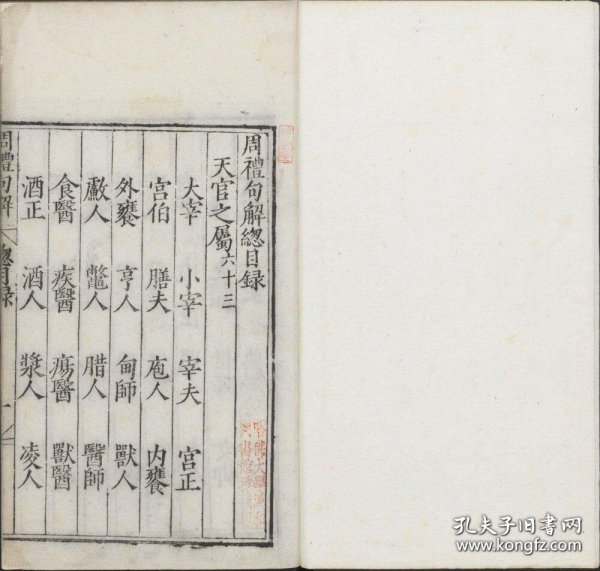 周禮句解總目録
天官之屬六十三
大宰 小宰 宰夫 宮正
宮伯 膳夫 庖人 内饔
外饔 亨人 甸師 獸人
䱷人 鼈人 腊人 醫師
食醫 疾醫 瘍醫 獸醫
酒正 酒人 漿人 凌人
周禮句解 總目録 一
孔夫子旧书网
www.kongfz.com